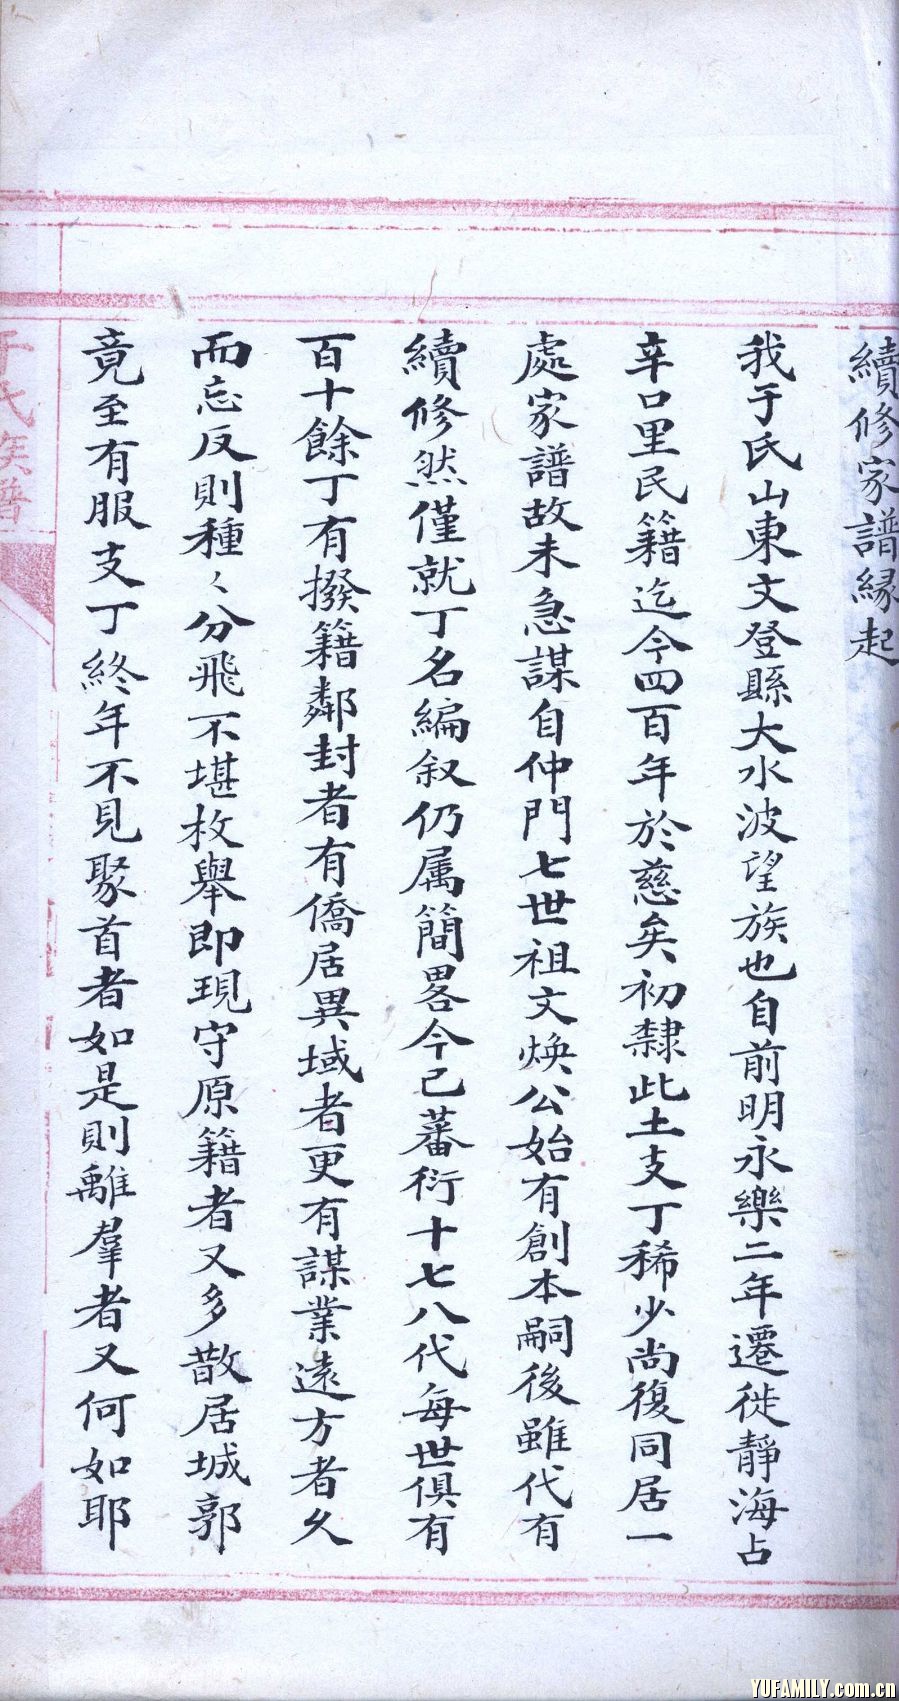 續修家譜緣起
我于氏山東文登縣大水波望族也自前明永樂二年遷徙靜海占
辛口里民籍迄今四百年於慈矣初隸此土支丁稀少尚復同居一
處家譜故未急謀自仲門七世祖文煥公始有創本嗣後雖代有
續修然僅就丁名編叙仍属簡畧今已蕃衍十七八代每世俱有
百十餘丁有撥籍鄰封者有僑居異域者更有謀業遠方者久
而忘反則種々分飛不堪枚舉即現守原籍者又多散居城郭
竟至有服支丁終年不見聚首者如是則離羣者又何如耶
于氏族譜
YUFAMILY.com.cn